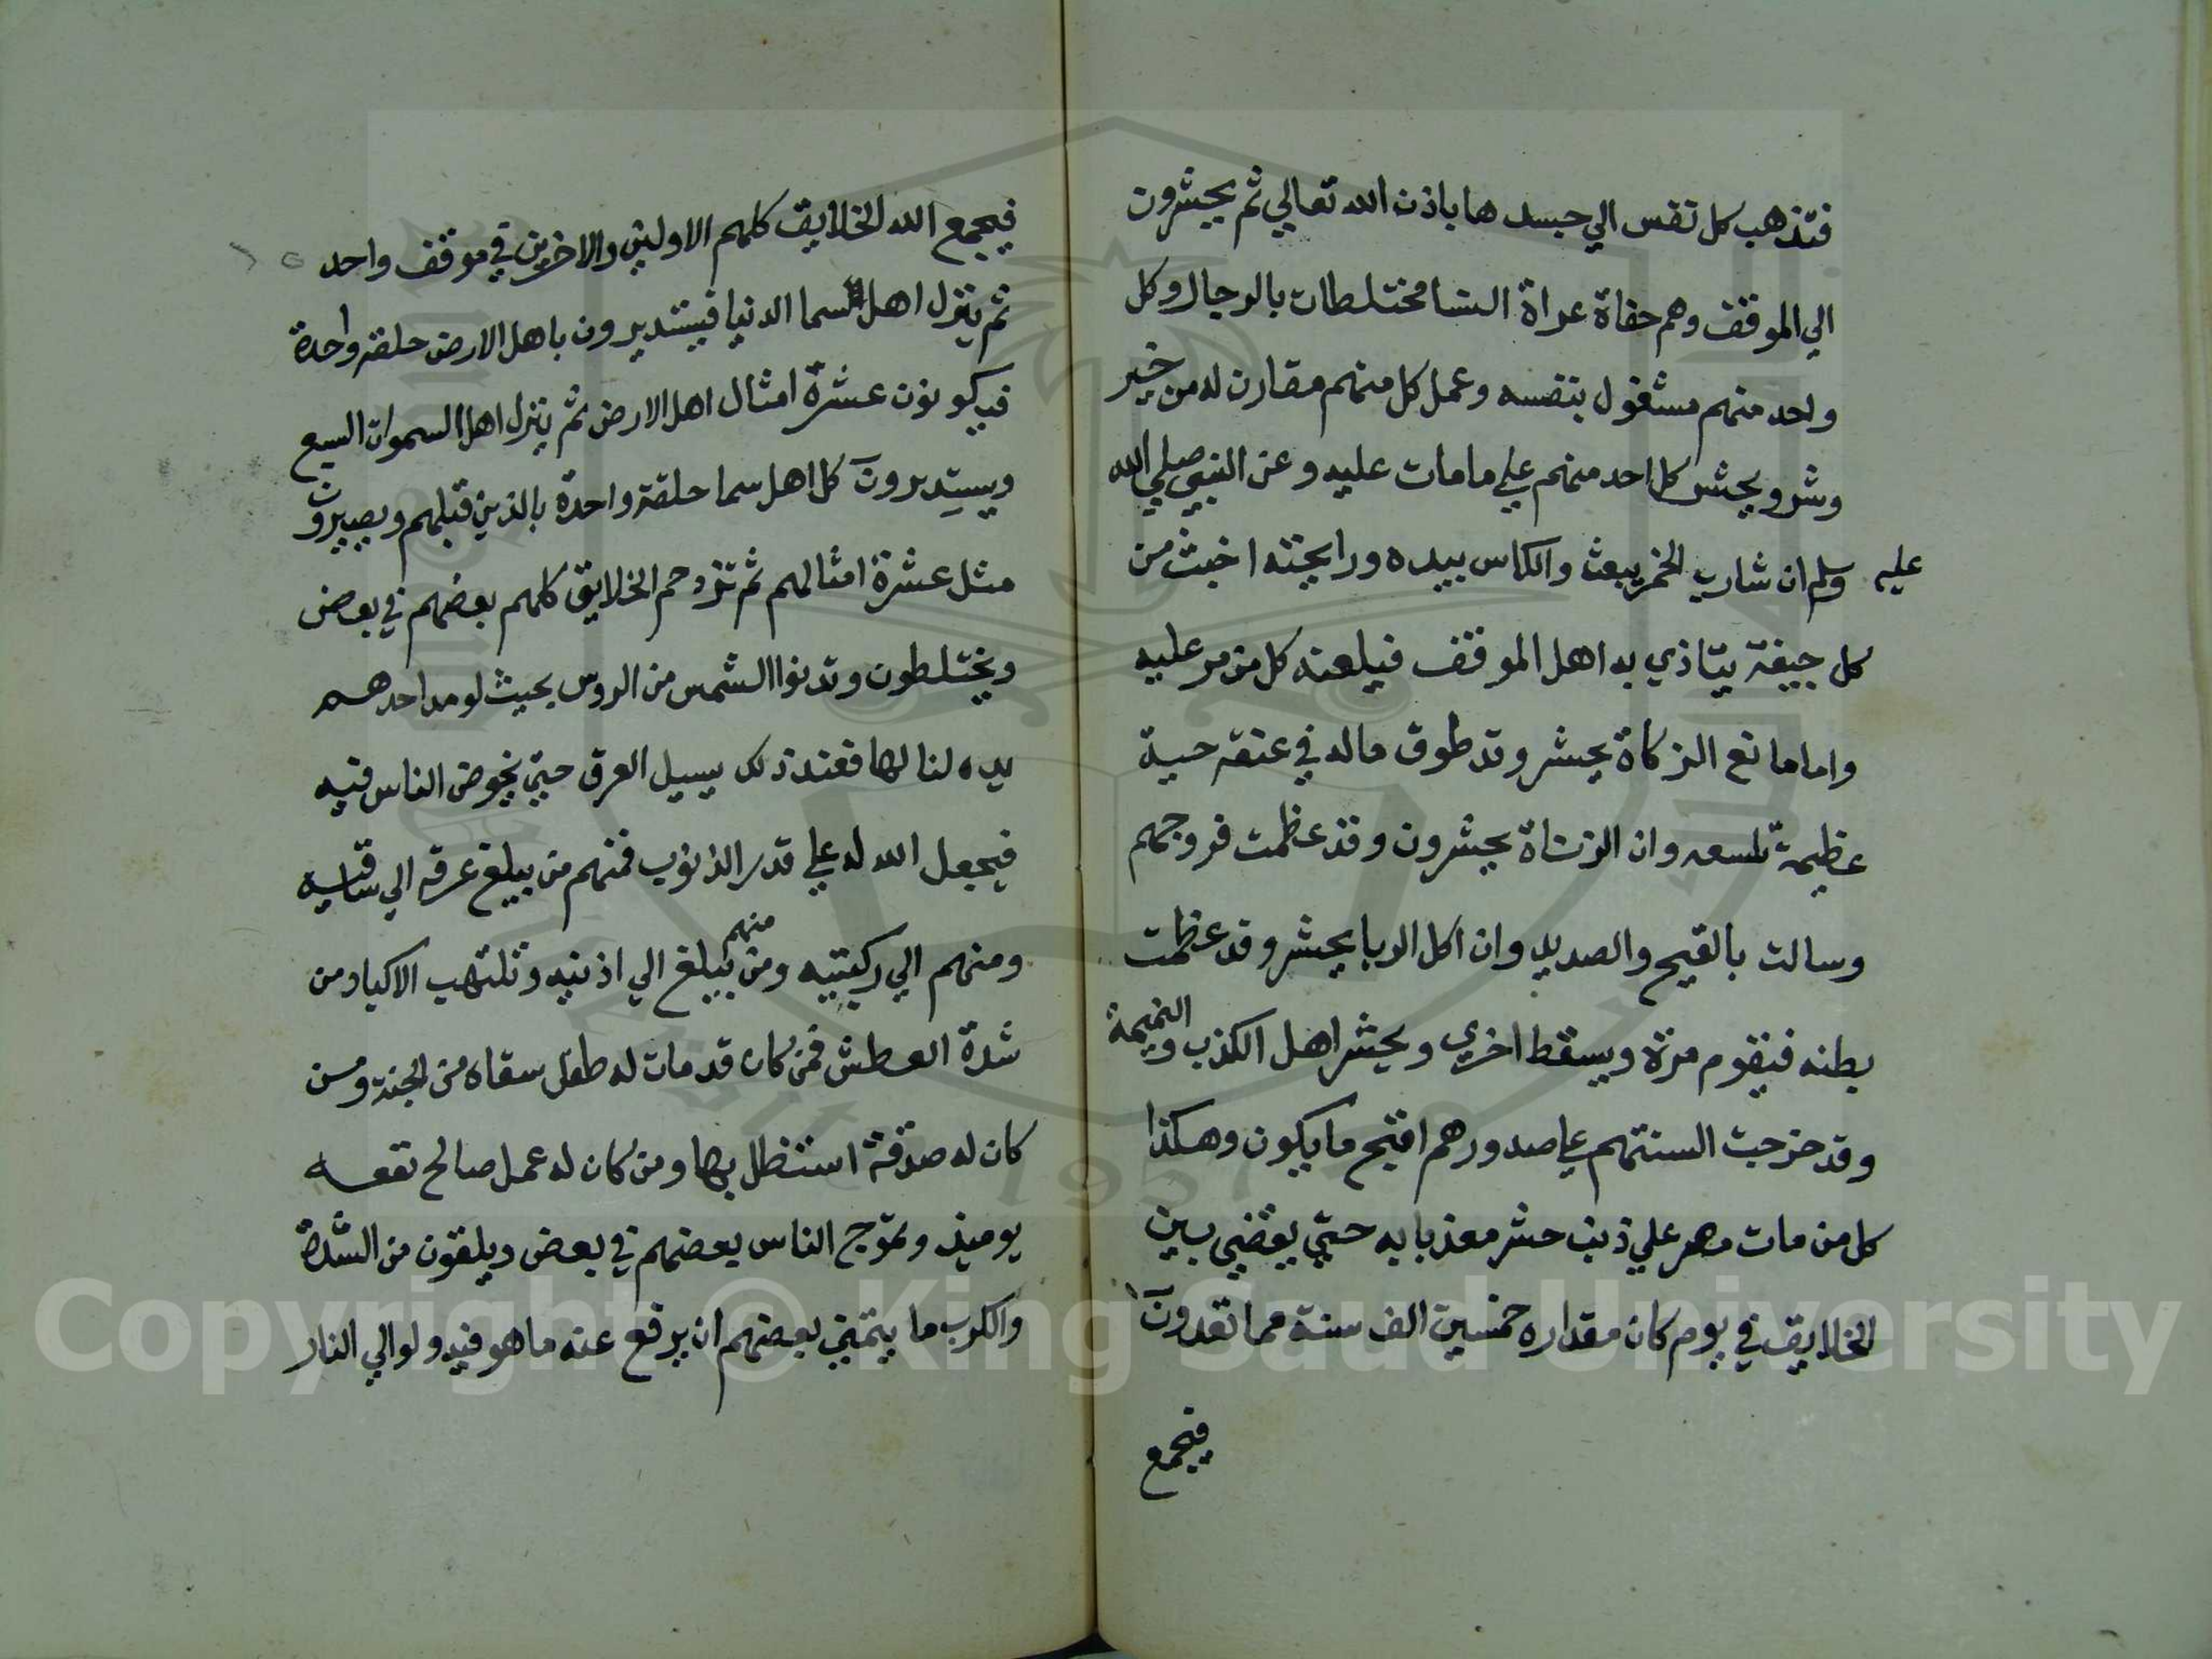 فتذهب كل نفس الي جسدها باذن الله تعالي ثم يحشرون
الي الموقف وهم حفاة عراة النسا مختلطات بالرجال وكل
واحد منهم مشغول بنفسه وعمل كل منهم مقارن له من خير
وشر ويحشر كل احد منهم علي ما مات عليه وعن النبي صلي الله
عليه وسلم ان شارب الخمر يبعث والكاس بيده ورايحته اخبث من
كل جيفة يتاذي به اهل الموقف فيلعنه كل من مر عليه
واما مانع الزكاة يحشر وقد طوق ماله في عنقه حية
عظيمة تلسعه وان الزناة يحشرون وقد عظمت فروجهم
وسالت بالقيح والصديد وان اكل الربا يحشر وقد عظمت
بطنه فيقوم مرة ويسقط اخري ويحشر اهل الكذب والنميمة
وقد خرجت السنتهم علي صدورهم اقبح ما يكون وهكذا
كل من مات مصر علي ذنب حشر معذبا به حتي يقضي بين
الخلايق في يوم كان مقداره خمسين الف سنة مما تعدون
فيجمع
فيجمع الله الخلايق كلهم الاولين والاخرين في موقف واحد
ثم ينزل اهل السما الدنيا فيستديرون باهل الارض حلقة واحدة
فيكونون عشرة امثال اهل الارض ثم ينزل اهل السموات السبع
ويستديرون كل اهل سما حلقة واحدة بالذين قبلهم ويصيرون
مثل عشرة امثالهم ثم تزدحم الخلايق كلهم بعضهم في بعض
ويختلطون وتدنوا الشمس من الروس بحيث لو مد احدهم
يده لنالها فعند ذلك يسيل العرق حتي يخوض الناس فيه
فيجعل الله له علي قدر الذنوب فمنهم من يبلغ عرقه الي ساقيه
ومنهم الي ركبتيه ومنهم من يبلغ الي اذنيه وتلتهب الاكباد من
شدة العطش فمن كان قد مات له طفل سقاه من الجنة ومن
كان له صدقة استظل بها ومن كان له عمل صالح نفعه
يوميذ وتموج الناس بعضهم في بعض ويلقون من الشدة
والكرب ما يتمني بعضهم ان يرفع عنه ما هو فيه ولو الي النار
Copyright © King Saud University
1957